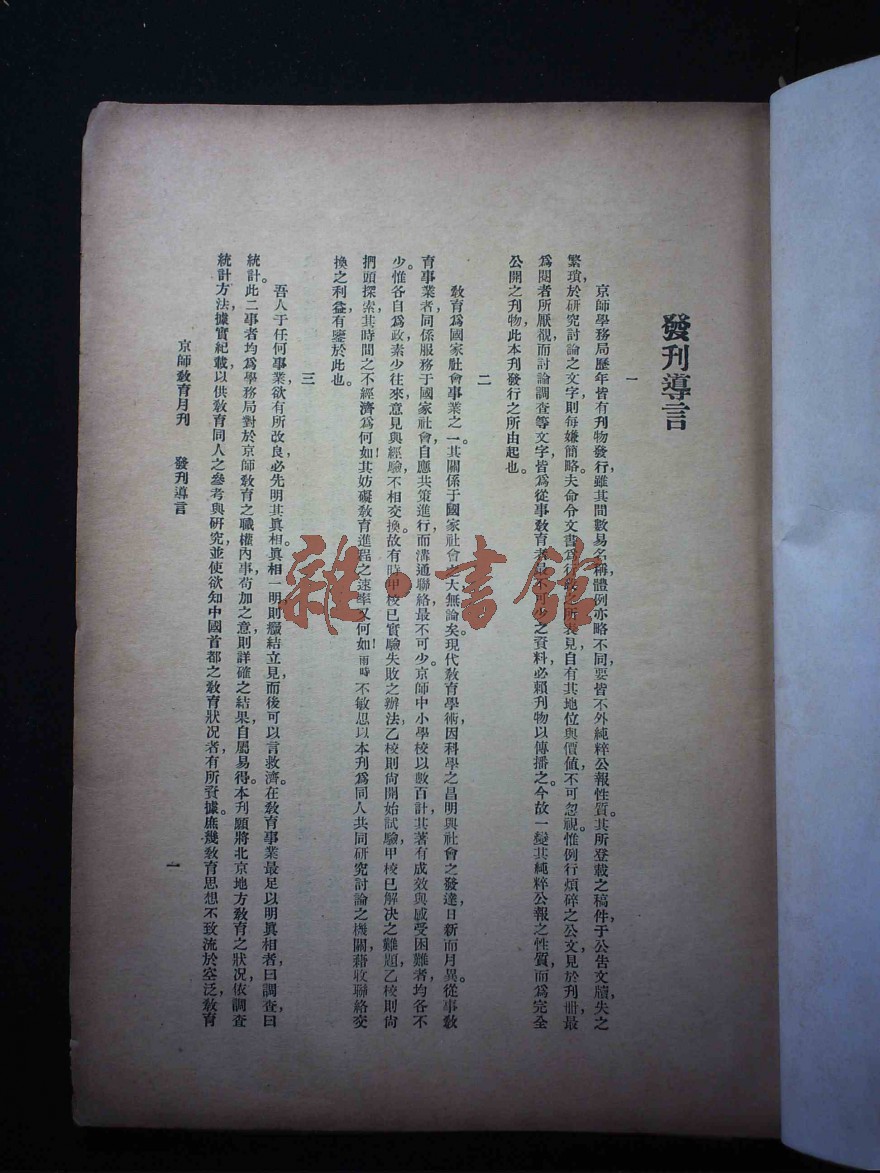 發刊導言
一
京師學務局歷年皆有刊物發行，雖其間數易名稱，體例亦略不同，要皆不外純粹公報性質。其所登載之稿件，于公告文牘失之
繁瑣，於研究討論之文字，則每嫌簡略。夫命令文書爲行政之所表見，自有其地位與價値，不可忽視。惟例行煩碎之公文，見於刊册，最
爲閱者所厭覩，而討論調查等文字，皆爲從事敎育者最不可少之資料，必賴刊物以傳播之。今故一變其純粹公報之性質，而爲完全
公開之刊物，此本刊發行之所由起也。
二
敎育爲國家社會事業之一。其關係于國家社會之大無論矣。現代敎育學術，因科學之昌明與社會之發達，日新而月異。從事敎
育事業者，同係服務于國家社會，自應共策進行，而溝通聯絡最不可少。京師中小學校以數百計，其著有成效與感受困難者，均各不
少。惟各自爲政，素少往來，意見與經驗不相交換。故有時甲校已實驗失敗之辦法，乙校則尙開始試驗，甲校已解决之難題，乙校則尙
捫頭探索，其時間之不經濟爲何如！其妨礙敎育進程之速率又何如！雨時不敏，思以本刊爲同人共同研究討論之機關，藉收聯絡交
換之利益，有鑒於此也。
三
吾人于任何事業，欲有所改良，必先明其眞相。眞相一明，則癥結立見，而後可以言救濟。在敎育事業最足以明眞相者，曰調查，曰
統計。此二事者，均爲學務局對於京師敎育之職權內事，苟加之意，則詳確之結果，自屬易得。本刊願將北京地方敎育之狀况，依調查
統計方法，據實紀載，以供敎育同人之參考與研究，並使欲知中國首都之敎育狀况者，有所資據。庶幾敎育思想不致流於空泛，敎育
京師敎育月刊　發刊導言
一
雜·書館